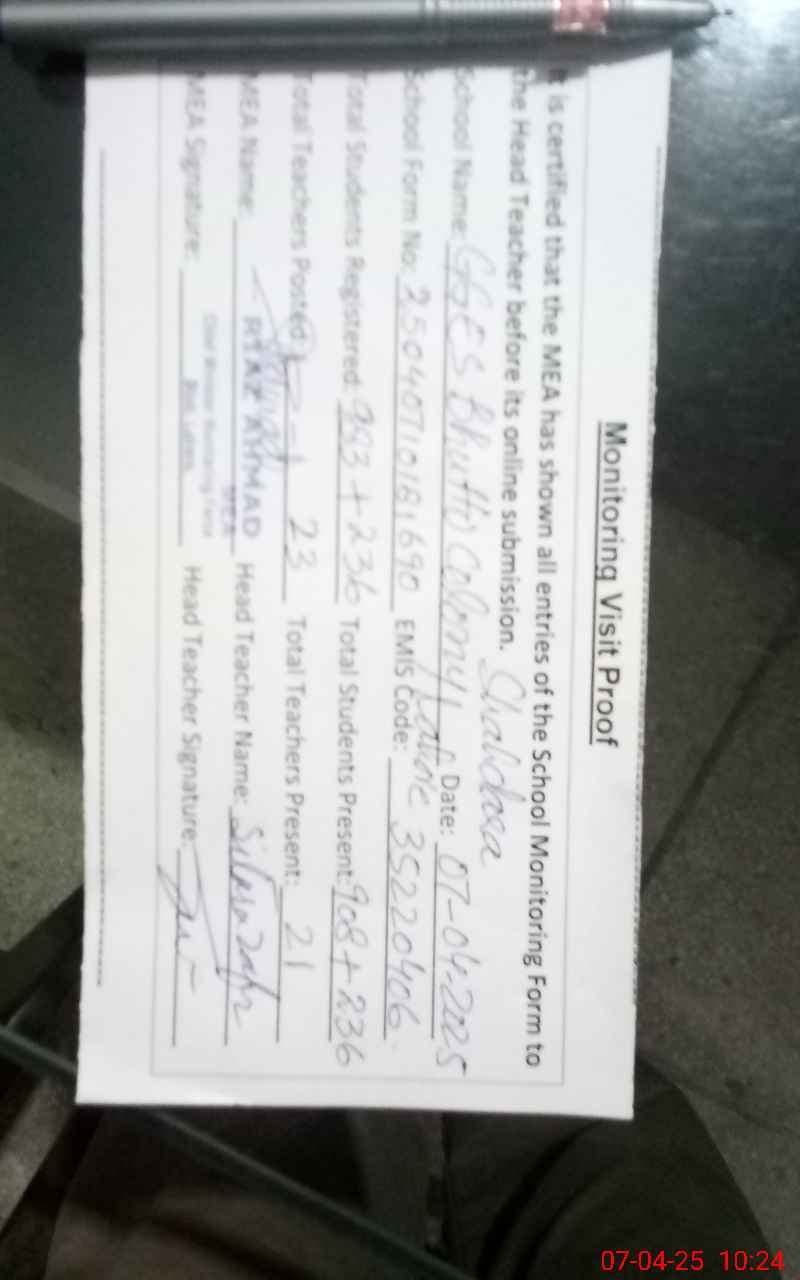 Monitoring Visit Proof
It is certified that the MEA has shown all entries of the School Monitoring Form to
the Head Teacher before its online submission.
School Name: GGES Bhutto Colony Lahore Shahdara Date: 07-04-2025
School Form No: 25040710181690 EMIS Code: 35220406
Total Students Registered: 983+236 Total Students Present: 908+236
Total Teachers Posted: 23 Total Teachers Present: 21
MEA Name: RIAZ AHMAD Head Teacher Name:
MEA
MEA Signature: Head Teacher Signature:
07-04-25 10:24